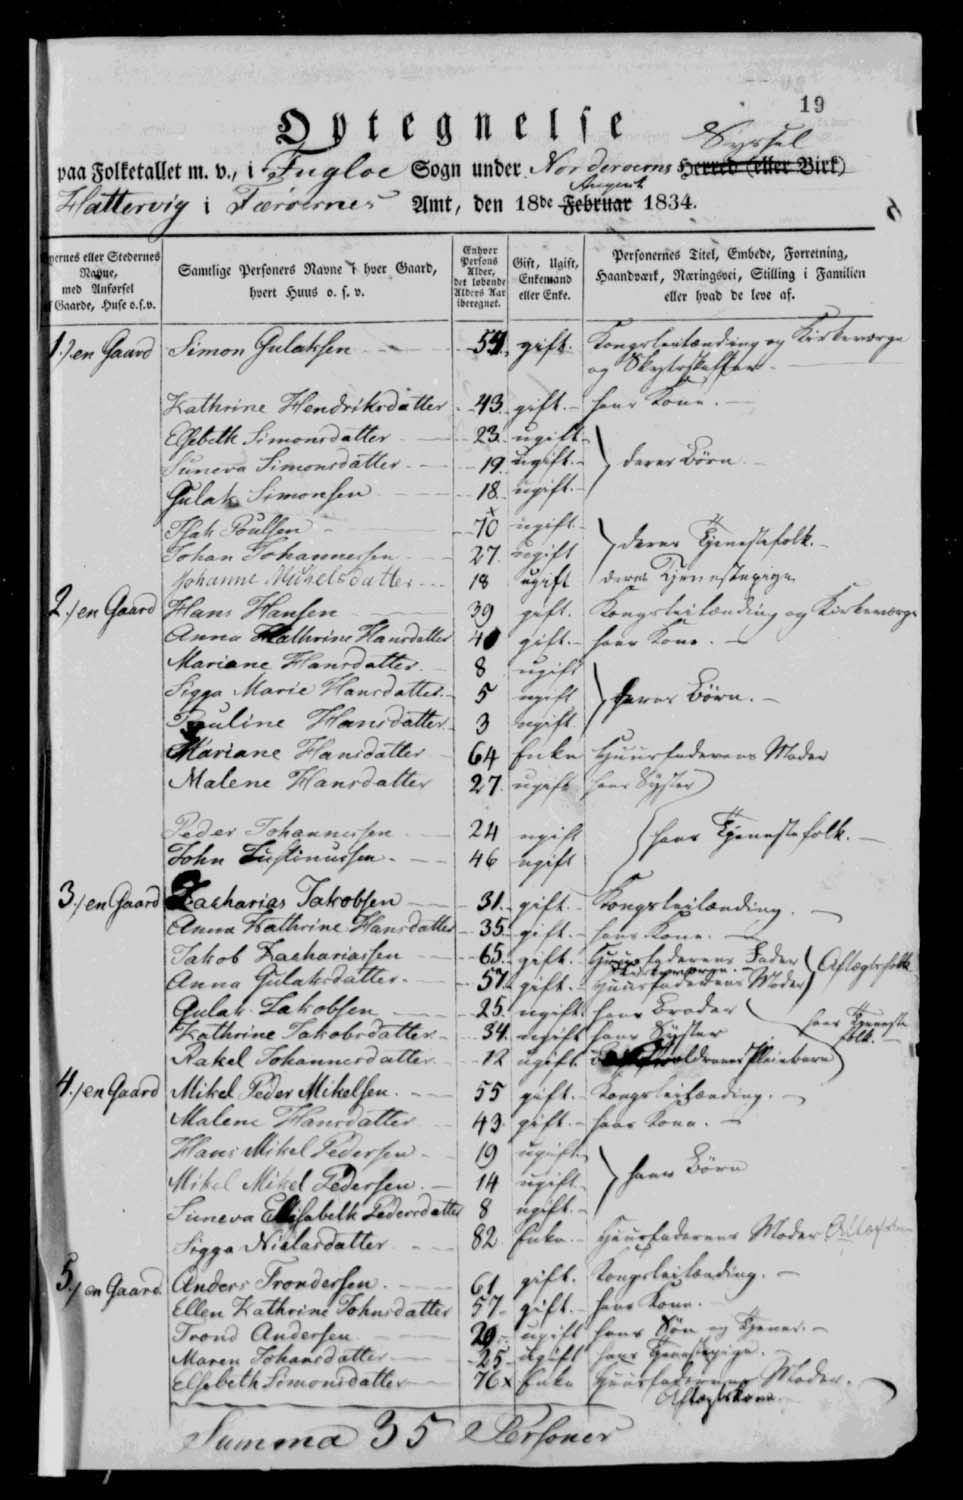 19
Optegnelse
Syssel
paa Folketallet m. v., i Fugloe Sogn under Norderoernes Herred (eller Birk)
August
Hattervig i Færöernes Amt, den 18de Februar 1834.
Byernes eller Stedernes Navne, med Anførsel af Gaarde, Huse o.s.v.
Samtlige Personers Navne i hver Gaard, hvert Huus o. s. v.
Enhver Persons Alder, det løbende Alders Aar iberegnet.
Gift, Ugift, Enkemand eller Enke.
Personernes Titel, Embede, Forretning, Haandværk, Næringsvei, Stilling i Familien eller hvad de leve af.
1.) en Gaard Simon Gulaksen 54. gift. Kongsleilænding og Kirkeværge
og Skydsskaffer
Kathrine Hendriksdatter 43 gift hans Kone.
Elsebeth Simonsdatter 23 ugift
Suneva Simonsdatter 19 ugift deres Börn
Gulak Simonsen 18 ugift
Isak Poulsen 70 ugift
Johan Johannessen 27 ugift deres Tjenestefolk.
Johanne Mikelsdatter 18 ugift deres Tjenestepige
2.) en Gaard Hans Hansen 39 gift. Kongsleilænding og Kirkeværge
Anna Kathrine Hansdatter 40 gift hans Kone.
Mariane Hansdatter 8 ugift
Sigga Marie Hansdatter 5 ugift deres Börn.
Pauline Hansdatter 3 ugift
Mariane Hansdatter 64 Enke Huusfaderens Moder
Malene Hansdatter 27 ugift hans Syster
Peder Johannessen 24 ugift hans Tjenestefolk.
John Justinussen 46 ugift
3.) en Gaard Zacharias Jakobsen 31. gift. Kongsleilænding.
Anna Kathrine Hansdatter 35 gift. hans Kone.
Jakob Zachariassen 65 gift. Huusfaderens Fader Aftægtsfolk
Anna Gulaksdatter 57 gift. Huusfaderens Moder
Gulak Jakobsen 25 ugift hans Broder
Kathrine Jakobsdatter 34 ugift hans Syster hans Tjenestefolk.
Rakel Johannesdatter 12 ugift. Pleiebarn
4.) en Gaard Mikel Peder Mikelsen 55 gift. Kongsleilænding.
Malene Hansdatter 43 gift. hans Kone.
Hans Mikel Pedersen 19 ugift
Mikel Mikel Pedersen 14 ugift hans Börn
Suneva Elisabeth Pedersdatter 8 ugift.
Sigga Nielasdatter 82 Enke Huusfaderens Moder
5.) en Gaard. Anders Trondersen 61 gift. Kongsleilænding.
Ellen Kathrine Johnsdatter 57 gift. hans Kone.
Trond Andersen 29 ugift hans Sön og Tjener.
Maren Johansdatter 25 ugift hans Tjenestepige.
Elsebeth Simonsdatter 76 x Enke Huusfaderens Moder.
Aftægtskone.
Summa 35 Personer